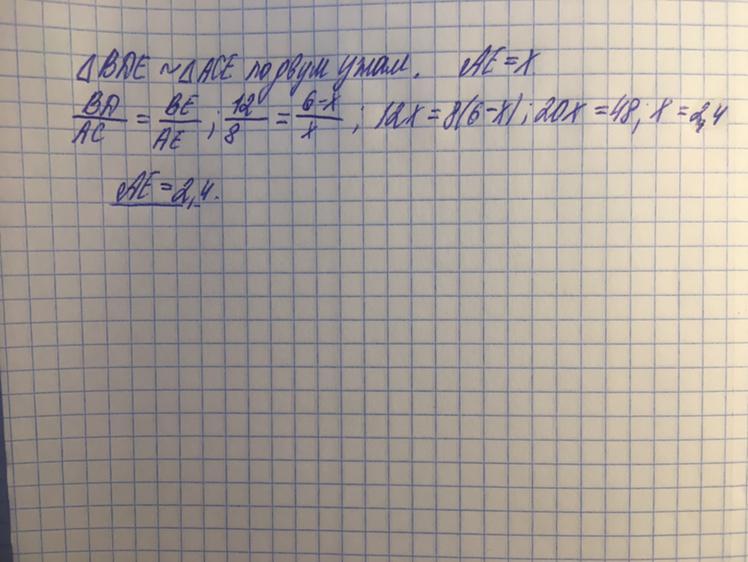 △BDE ~ △ACE по двум углам. AE = x
BD/AC = BE/AE ; 12/8 = 6-x/x ; 12x = 8(6-x) ; 20x = 48 ; x = 2,4
AE = 2,4.